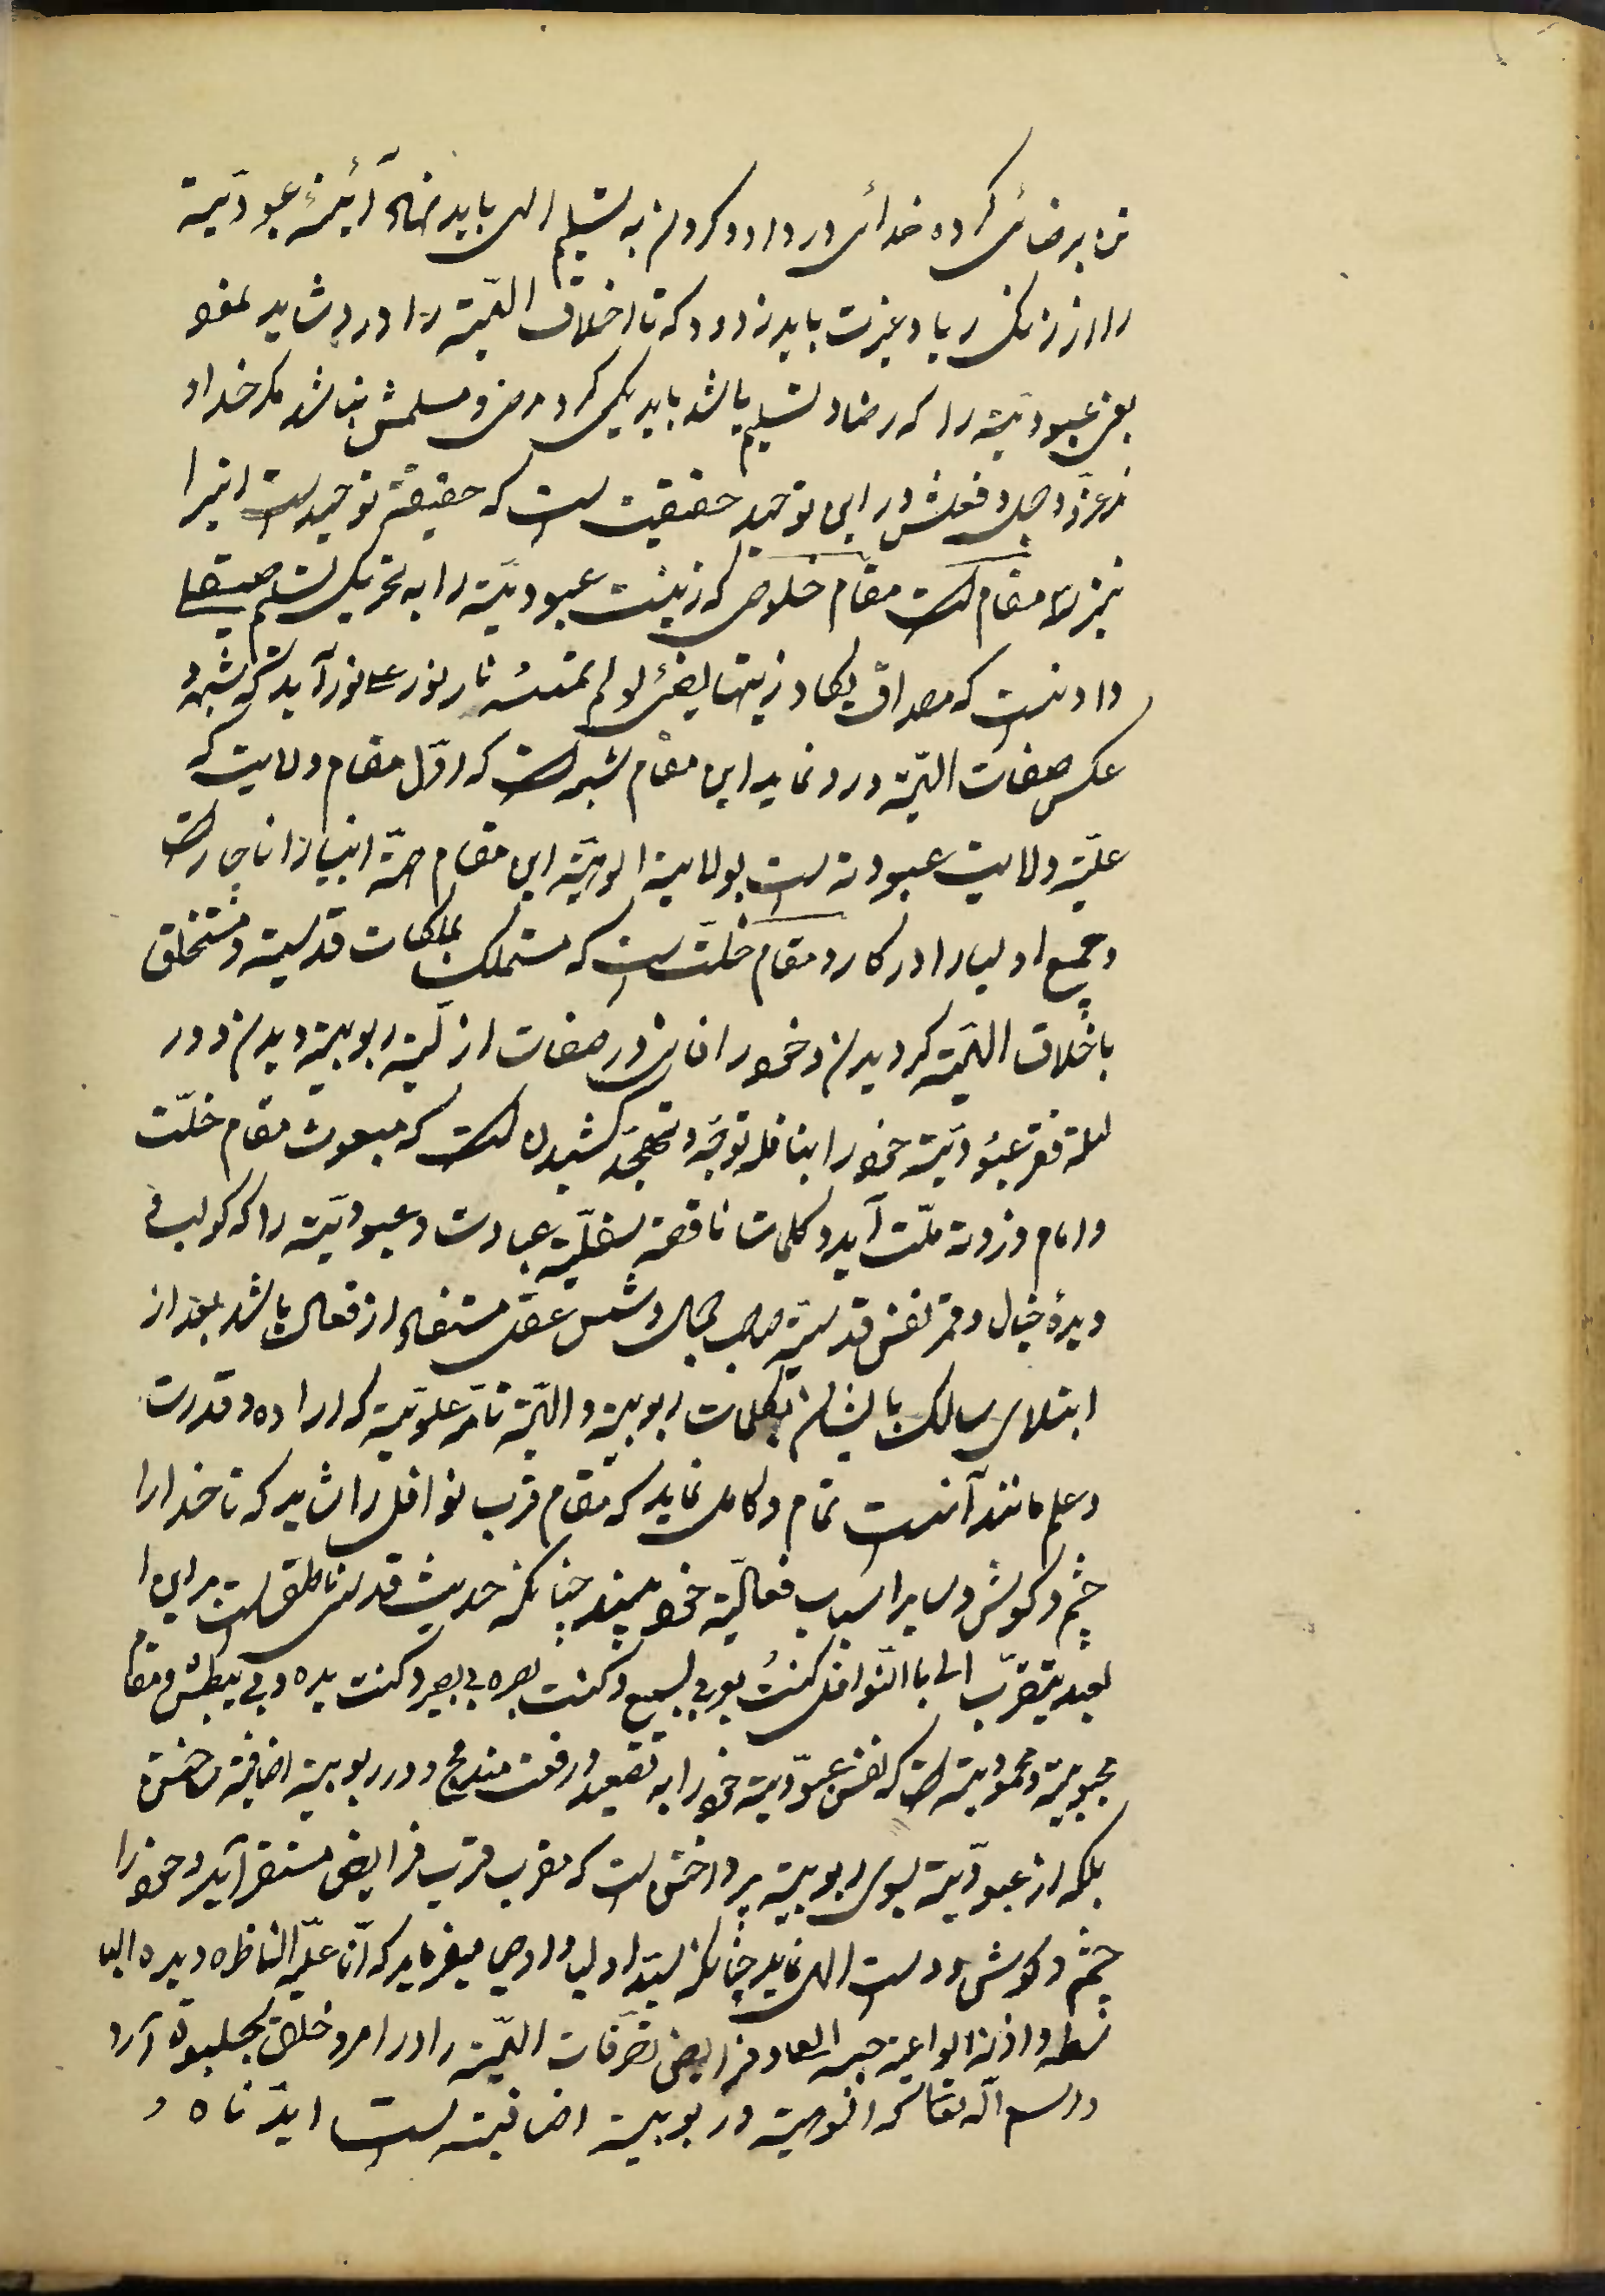 برضائی کرده خدائی در دادو کردن به تسلیم الهی باید نهاد آئینهٔ عبودیّة
را از زنک ریا و غیرت باید زدود که تا اخلاق الهیّة را در رو شاید نمود
یعنی عبودیّة را که رضا و تسلیم باشد باید یکی کرد مرضی و مسلمش نباشد مکر خداو
عزّ و جل و فعلش در این توحید حقیقت است که حقیقة توحید است
نیز مقام است مقام خلاص که زیت عبودیّة را به تحریک تسلیم صیقلی
دادنست که مصداق یکاد زیتها یضئ لو لم تمسسه نار نور علی نور آید که
عکس صفات الهیّة در رو نماید این مقام است که اوّل مقام ولایت که
علیّة ولایت عبودیة است بولایة الوهیّة این مقام همّة انبیا را ناچار است
و جمیع اولیا را در کار و مقام خلّت است که متملک بملکات قدسیة و متخلق
باخلاق الهیّة کردیدن و خود را فانی در صفات ازلیّة ربوبیة دیدن و در
لیلة فقر عبودیّة خود را بنافله توجّه و تهجّد کشیدن است که مبعوث مقام خلّت
و امام وزوة ملّت آید و کلمات ناقصة سفلیّة عبادت و عبودیّة را که کوکب
دیدهٔ خیال و قمر نفس قدسیّة صاحب کمال و شمس عقل مستفاد از فعال باشد بعد از
ابتلای سالک بایشان بکلمات ربوبیة و الهیّة تامّه علویّة که اراده و قدرت
و علم مانند آنست تمام و کامل نماید که مقام قرب نوافل را شاید که تا خدا را
چشم و کوش و سایر اسباب فعالیّة خود بیند چنانکه حدیث قدسی ناطق است براین
لعبد یتقرّب الی باالنّوافل کنتُ بی یسمع و کنت بصره بی یبصر و کنت یده و بی یبطش و مقام
محبوبیة و محمودیة است که نفس عبودیة خود را به تصعید و رفعت مندمج در ربوبیة اضافیّة ساختن
بلکه از عبودیّة بسوی ربوبیة پرداختن است که مقرب قرب فرایض مستقر آید و خود را
چشم و کوش و دست الهی نماید چنانکه سیّد اولیا و اوصیا میفرماید که انّا عین الله النّاظره و یده البا
سطه و اذنه الواعیة فرایض تصرّفات الهیّة را در امر و خلق بجلوه آرد
در اسم اله تعالی که الوهیة و ربوبیة اضافیة است ایّدناه و